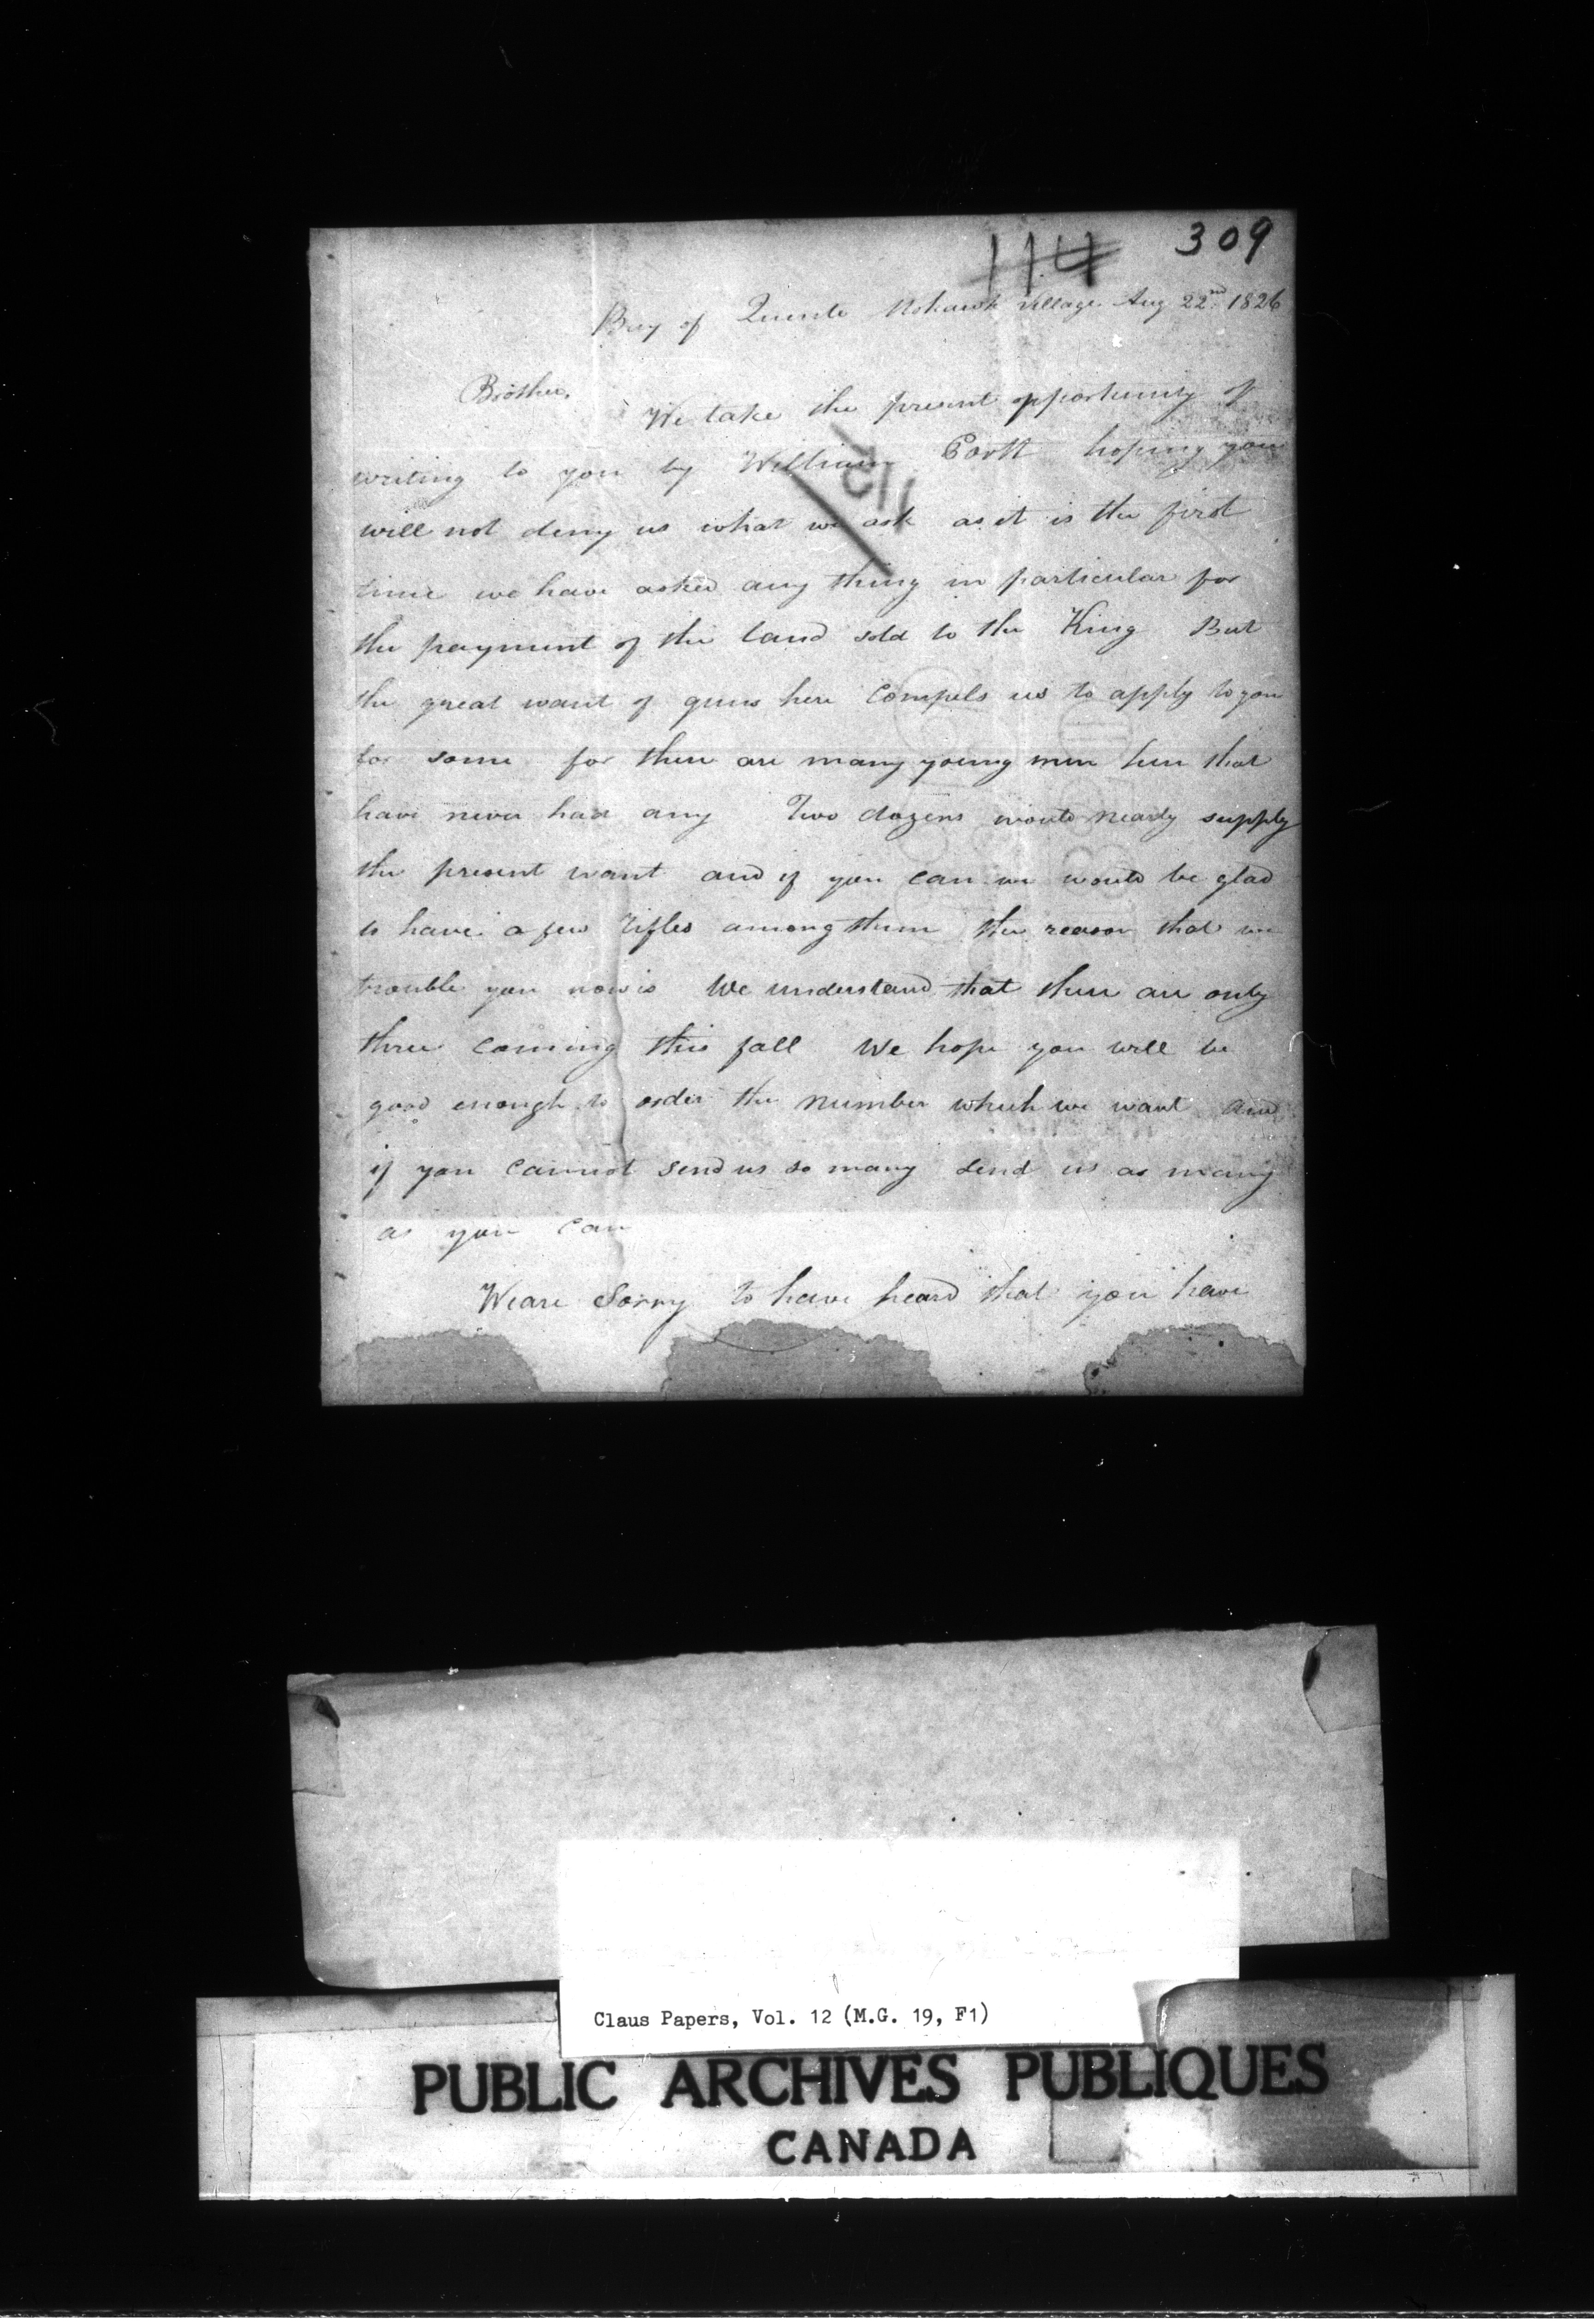 114 309
Bay of Quinte Mohawk Village Aug 22nd 1826
Brother,
We take the present opportunity of
writing to you by William Portt hoping you
112
will not deny us what we ask as it is the first
time we have asked any thing in particular for
the payment of the land sold to the King But
the great want of guns here compels us to apply to you
for some for there are many young men here that
have never had any Two dozens would nearly supply
the present want and if you can we would be glad
to have a few rifles among them the reason that we
trouble you now is We understand that there are only
three coming this fall We hope you will be
good enough to order the number which we want and
if you cannot send us so many send us as many
as you can
We are Sorry to have heard that you have
Claus Papers, Vol. 12 (M.G. 19, F1)
PUBLIC ARCHIVES PUBLIQUES
CANADA